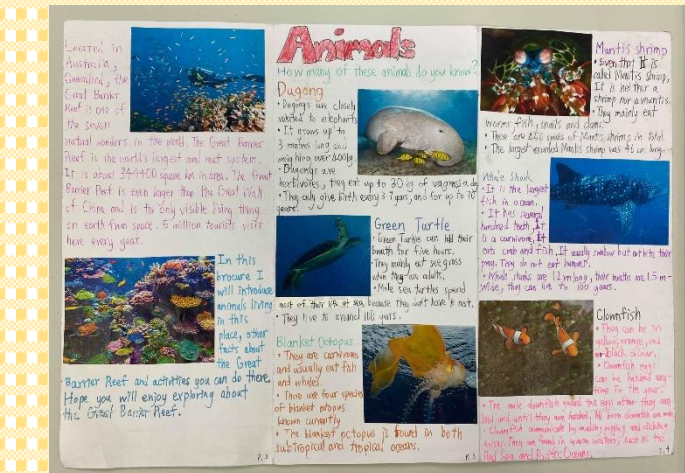 Located in
Australia,
Queensland, the
Great Barrier
Reef is one of
the seven
natural wonders in the world. The Great Barrier
Reef is the world's largest and reef system.
It is about 344400 square km in area. The Great
Barrier Reef is even larger than the Great Wall
of China and is the only visible living thing
on earth from space. 5 million tourists visit
here every year.
In this
brocure I
will introduce
animals living
in this
place, other
facts about
the Great
Barrier Reef and activities you can do there.
Hope you will enjoy exploring about
the Great Barrier Reef.
Animals
How many of these animals do you know?
Dugong
• Dugongs are closely
related to elephants
• It grows up to
3 metres long and
weighing over 400kg.
• Dugongs are
herbivores, they eat up to 30 kg of seagrass a day
• They only give birth every 3-7 years, and for up to 70
years.
Green Turtle
• Green Turtles can hold their
breath for five hours.
• They mainly eat seegrass
when they are adults.
• Male sea turtles spend
most of their life at sea, because they don't have to nest.
• They live to around 100 years.
Blanket Octopus
• They are carnivores
and usually eat fish
and whales.
• There are four species
of blanket octopus
known currently
• The blanket octopus is found in both
subtropical and tropical oceans.
Mantis shrimp
• Even that it is
called Mantis shrimp,
It is neither a
shrimp nor a mantis.
• They mainly eat
worms fish, snails and clams.
• There are 450 species of Mantis shrimps in total.
• The largest recorded Mantis shrimp was 46 cm long.
Whale Shark
• It is the largest
fish in ocean.
• It has several
hundred teeth, It
is a carnivore, It
eats crab and fish, It usually swallow but not bite their
prey. They do not eat humans.
• Whale sharks are 12 m long, their mouths are 1.5 m
wide, they can live to 100 years.
Clownfish
• They can be in
yellow, orange, red
or black colour.
• Clownfish eggs
can be hatched any-
time in the year.
• The male clownfish guard the eggs after they are
laid and until they are hatched. All born clownfish are male.
• Clownfish communicate by making popping and clicking
noises. They are found in warm waters, such as the
Red Sea and Pacific Oceans.
P.3
P.4